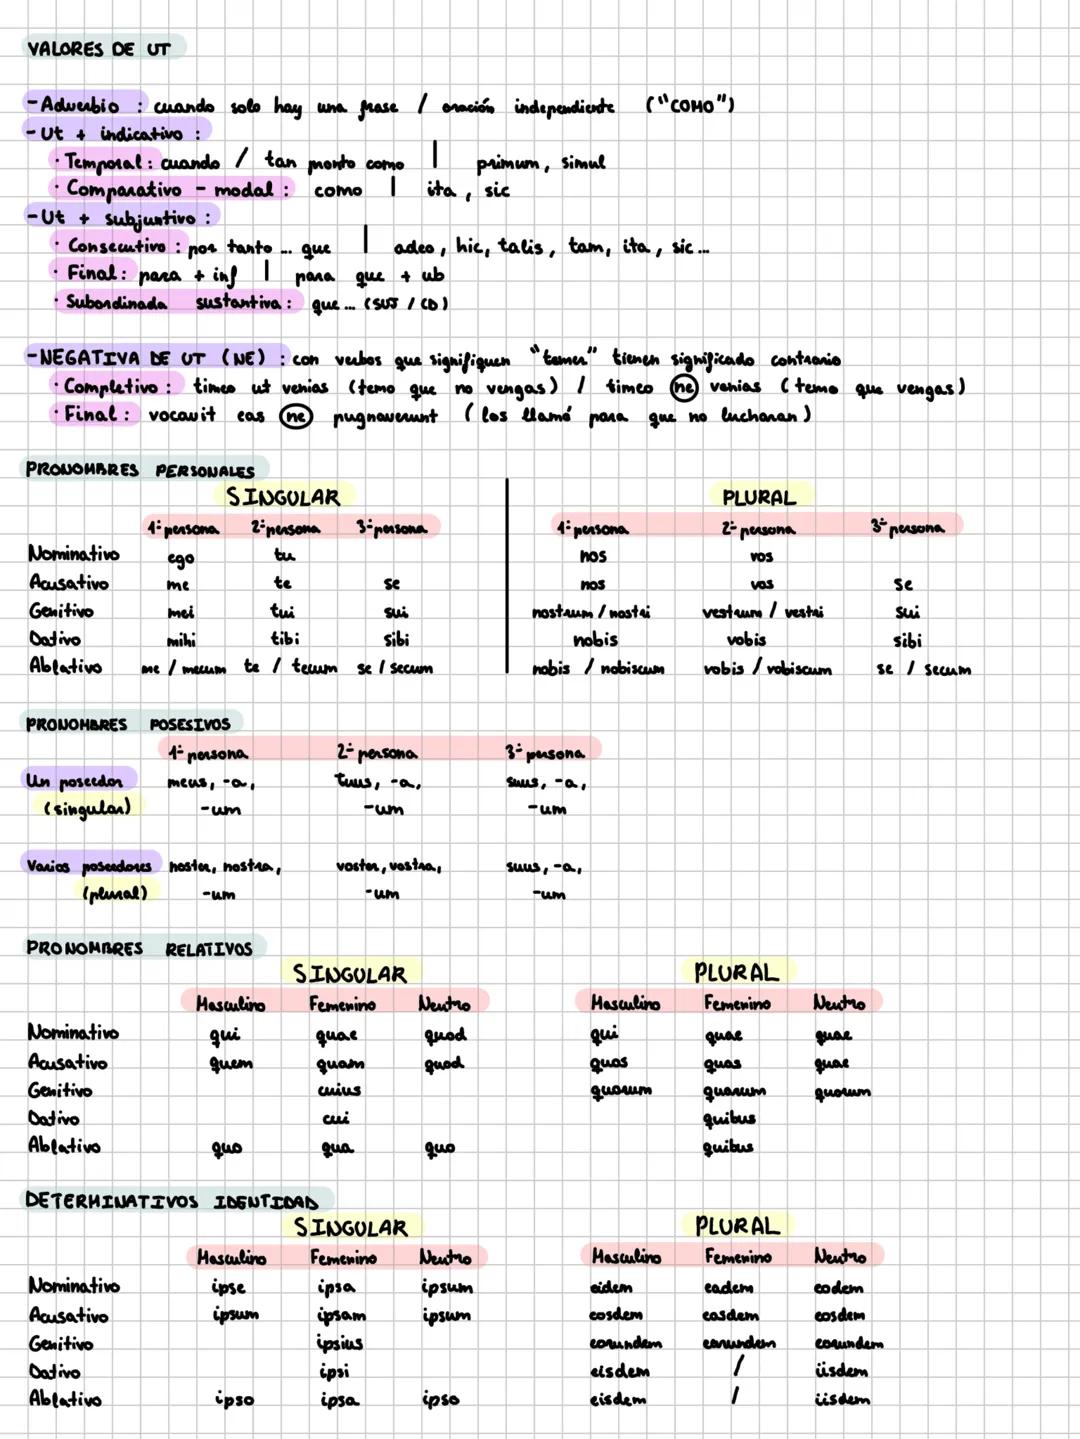 VALORES DE UT
-Adverbio : cuando solo hay una frase / oración independiente ("COMO")
-Ut + indicativo :
· Temporal : cuando / tan pronto como | primum, simul
· Comparativo - modal : como | ita, sic
-Ut + subjuntivo :
· Consecutivo : por tanto ... que | adeo, hic, talis, tam, ita, sic ...
· Final : para + inf | para que + ub
· Subordinada sustantiva : que ... (SUJ / CD)
-NEGATIVA DE UT (NE) : con verbos que signifiquen "temer" tienen significado contrario
· Completivo : timeo ut venias (temo que no vengas) / timeo ne venias (temo que vengas)
· Final : vocavit eas ne pugnaverunt (los llamó para que no lucharan)
PRONOMBRES PERSONALES
SINGULAR PLURAL
1ª persona 2ª persona 3ª persona 1ª persona 2ª persona 3ª persona
Nominativo ego tu nos vos
Acusativo me te se nos vos se
Genitivo mei tui sui nostrum / nostri vestrum / vestri sui
Dativo mihi tibi sibi nobis vobis sibi
Ablativo me / mecum te / tecum se / secum nobis / nobiscum vobis / vobiscum se / secum
PRONOMBRES POSESIVOS
1ª persona 2ª persona 3ª persona
Un poseedor meus, -a, tuus, -a, suus, -a,
(singular) -um -um -um
Varios poseedores noster, nostra, voster, vostra, suus, -a,
(plural) -um -um -um
PRONOMBRES RELATIVOS
SINGULAR PLURAL
Masculino Femenino Neutro Masculino Femenino Neutro
Nominativo qui quae quod qui quae quae
Acusativo quem quam quod quos quas quae
Genitivo cuius quorum quarum quorum
Dativo cui quibus
Ablativo quo qua quo quibus
DETERMINATIVOS IDENTIDAD
SINGULAR PLURAL
Masculino Femenino Neutro Masculino Femenino Neutro
Nominativo ipse ipsa ipsum eidem eadem eodem
Acusativo ipsum ipsam ipsum eosdem easdem eosdem
Genitivo ipsius eorundem earundem eorundem
Dativo ipsi eisdem / iisdem
Ablativo ipso ipsa ipso eisdem / iisdem